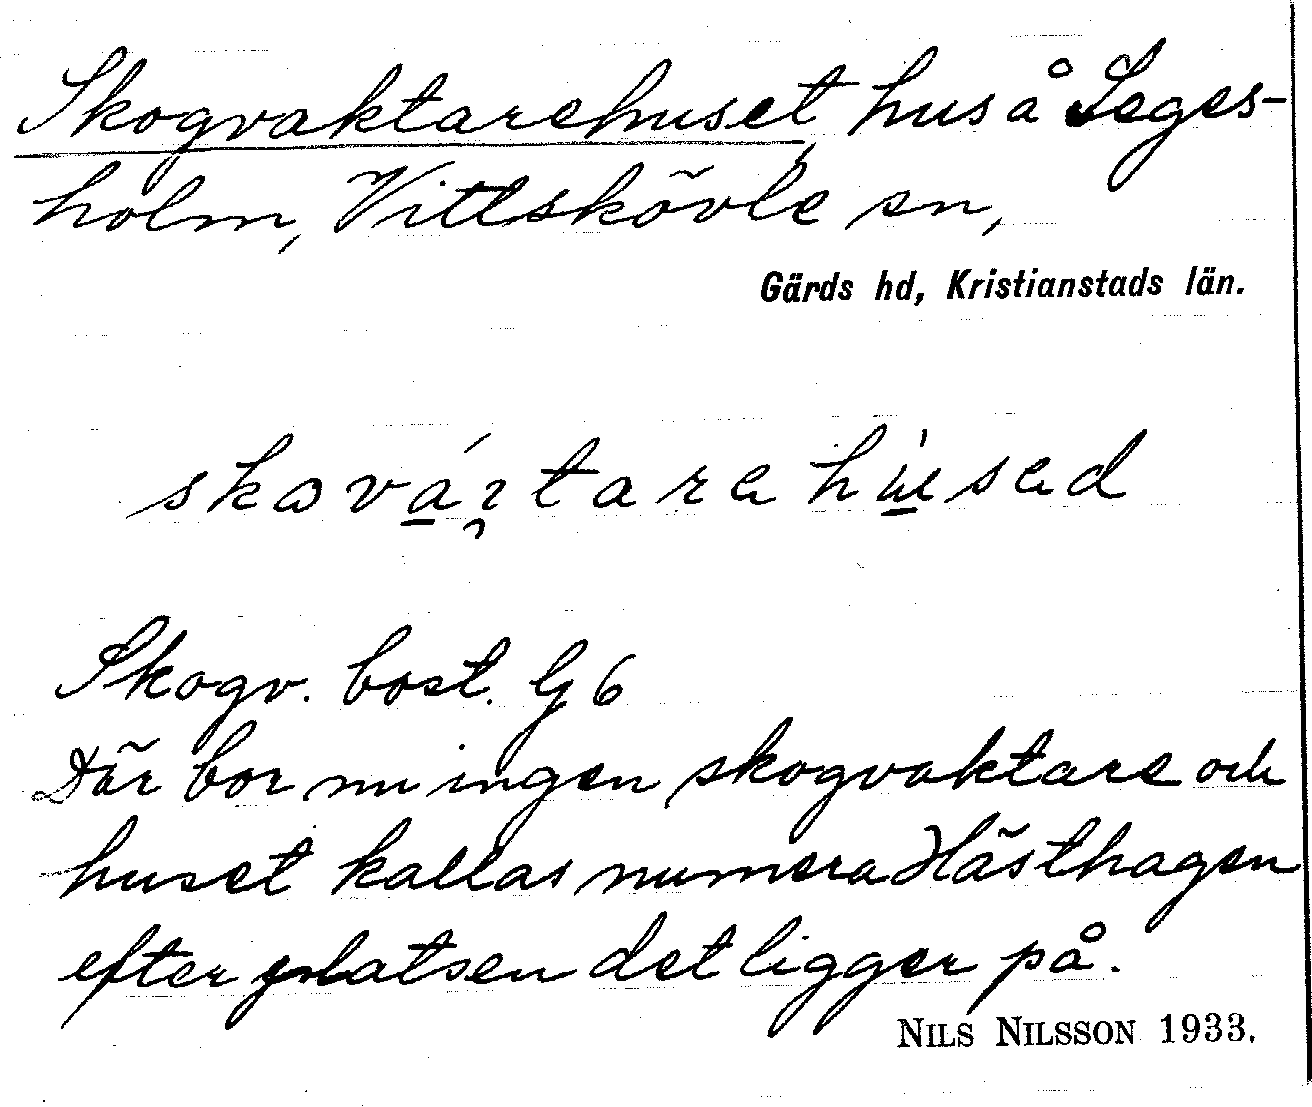 Skogvaktarehuset, hus å Seges-
holm, Vittskövle sn,
Gärds hd, Kristianstads län.
Skogv. bost. G 6
Där bor nu ingen skogvaktare och
huset kallas numera Hästhagen
efter platsen det ligger på.
NILS NILSSON 1933.